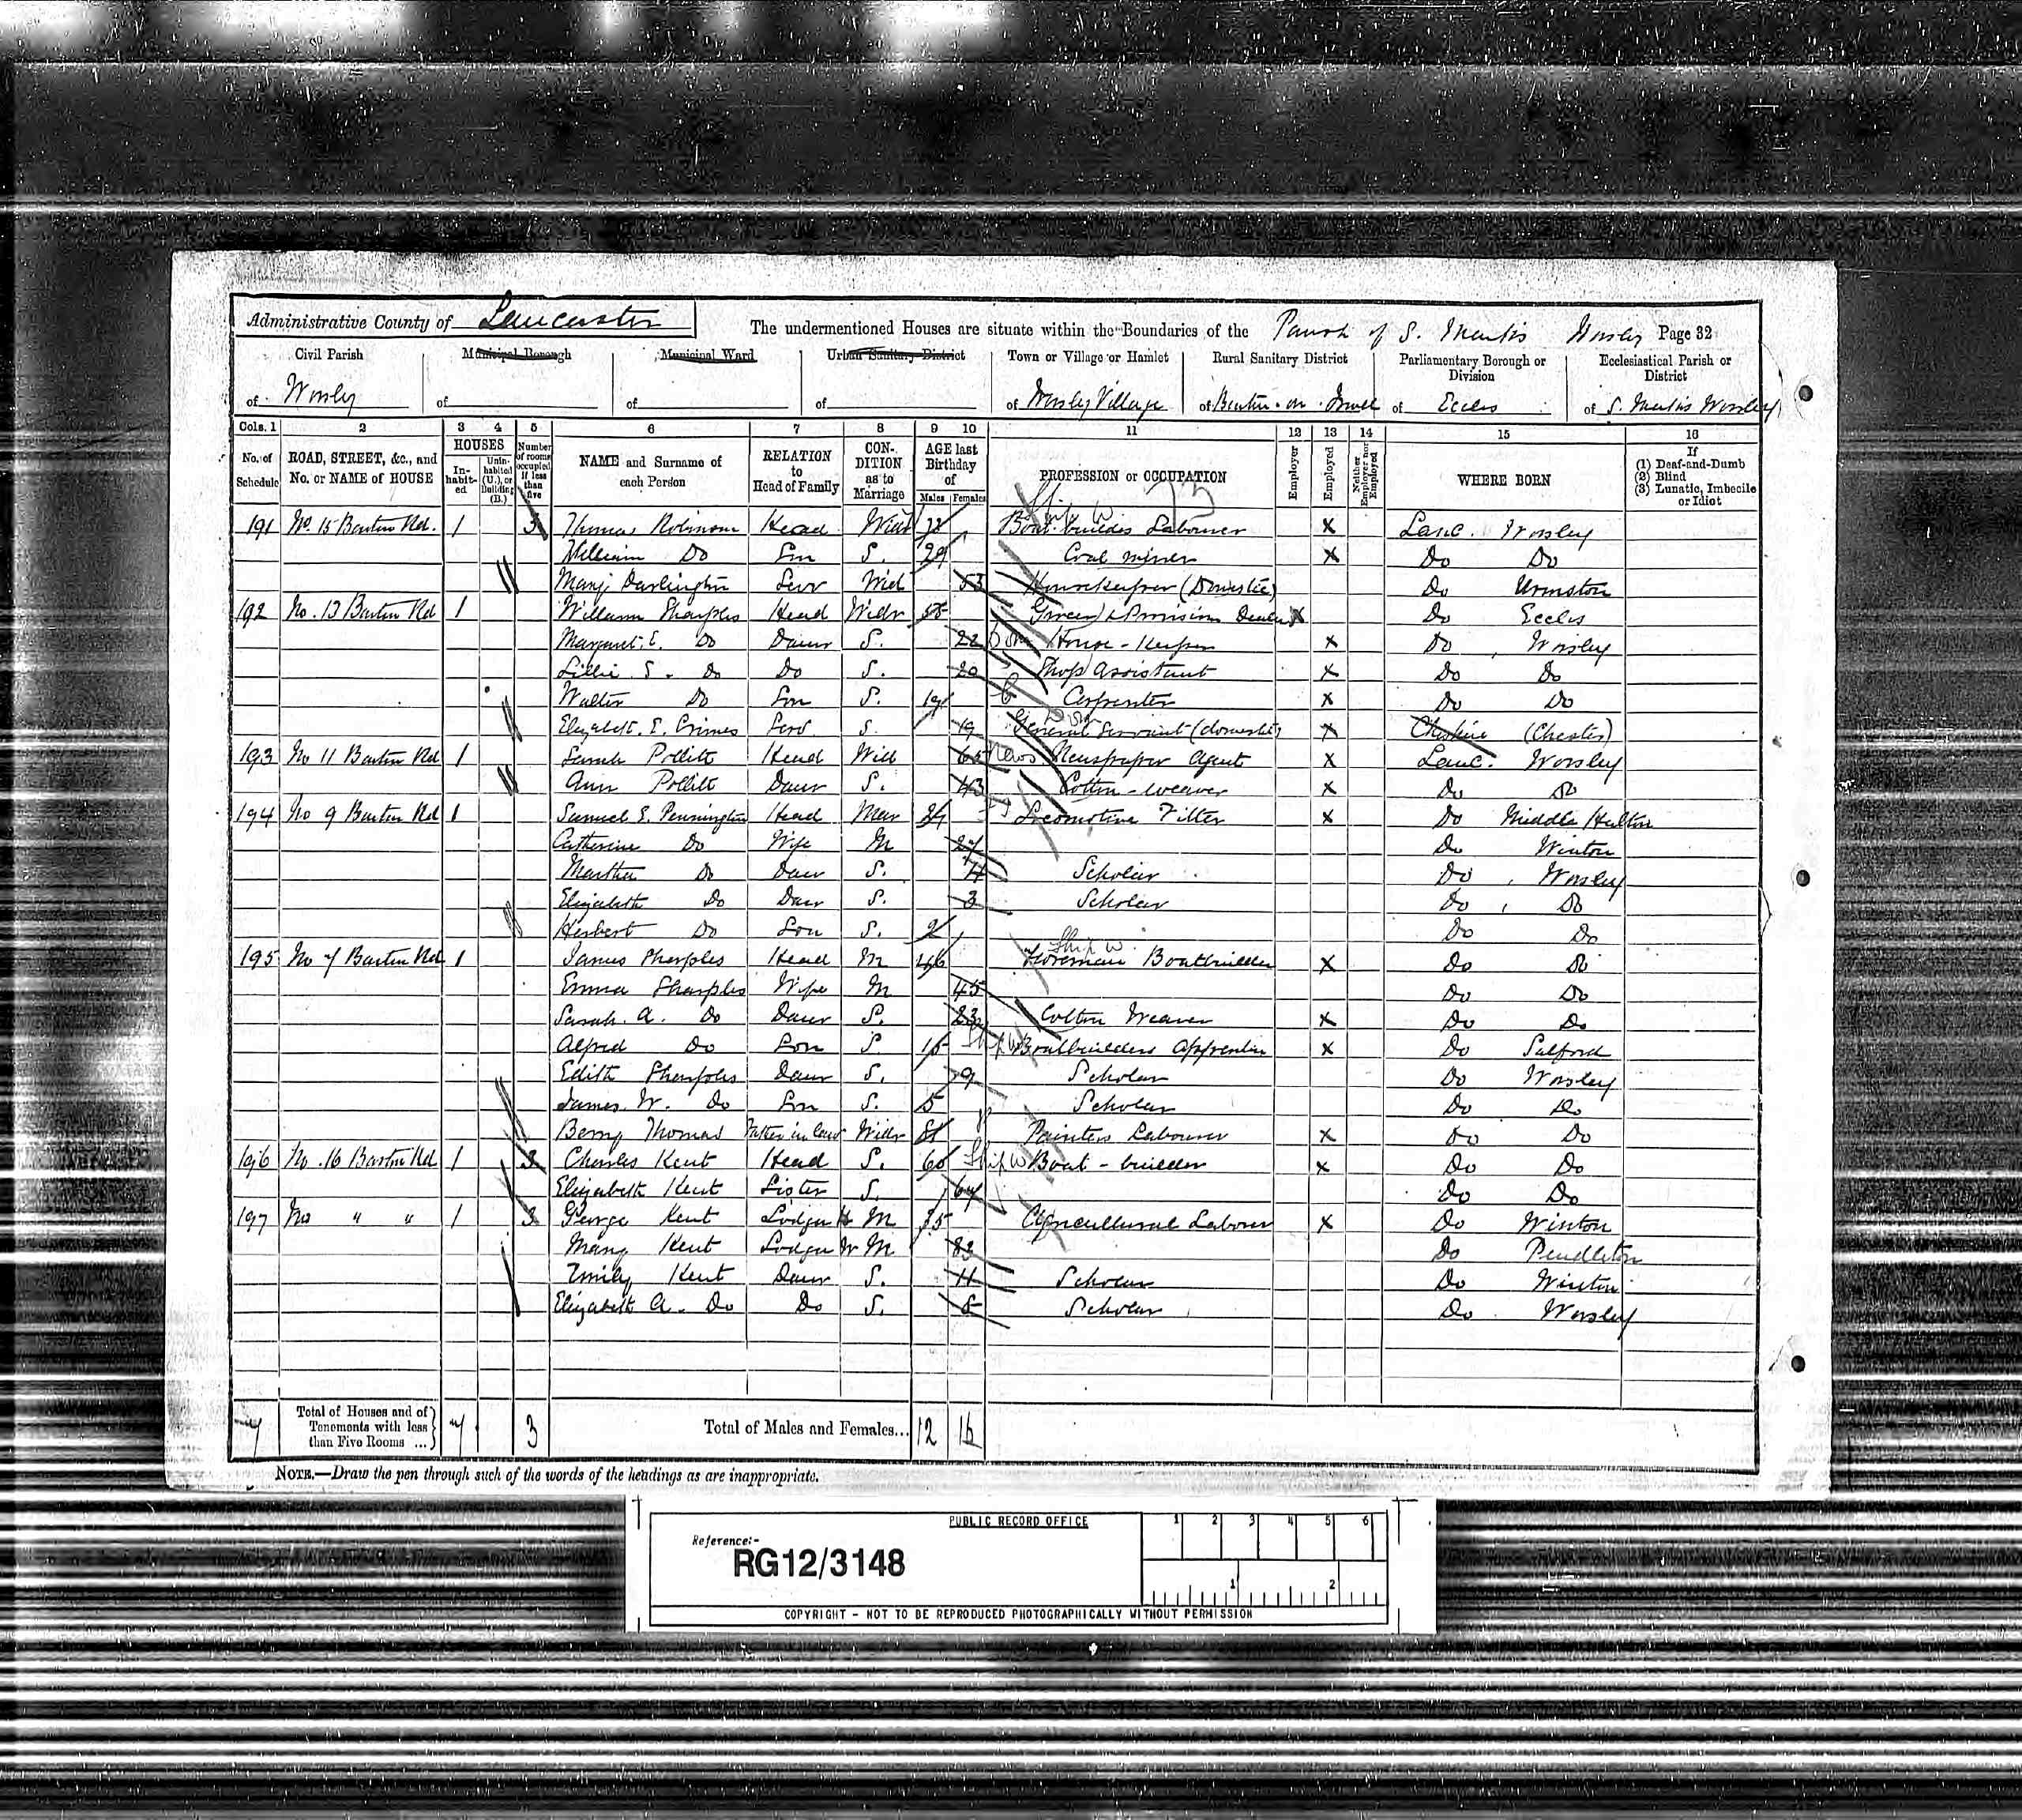 Administrative County of Lancaster The undermentioned Houses are situate within the Boundaries of the Parish of S. Marks Worsley Page 32
Civil Parish Municipal Borough Municipal Ward Urban Sanitary District Town or Village or Hamlet Rural Sanitary District Parliamentary Borough or Division Ecclesiastical Parish or District
of Worsley of of of of Worsley Village of Barton-on-Irwell of Eccles of S. Marks Worsley
Cols. 1 2 3 4 5 6 7 8 9 10 11 12 13 14 15 16
No. of Schedule ROAD, STREET, &c., and No. or NAME of HOUSE HOUSES In-habit-ed Unin-habited (U.), or Building (B.) Number of rooms occupied if less than five NAME and Surname of each Person RELATION to Head of Family CON-DITION as to Marriage AGE last Birthday of Males Females PROFESSION or OCCUPATION Employer Employed Neither Employer nor Employed WHERE BORN If (1) Deaf-and-Dumb (2) Blind (3) Lunatic, Imbecile or Idiot
Ship W
191 No 15 Barton Rd. 1 3 Thomas Robinson Head Widr Boat-builders Labourer X Lanc. Worsley
William Do Son S. 29 Coal miner X Do Do
Mary Darlington Serv Wid 53 Housekeeper (Domestic) Do Urmston
192 No. 13 Barton Rd 1 William Sharples Head Widr 55 Grocer & Provision Dealer X Do Eccles
Margaret. E. Do Daur S. 22 Dom House-Keeper X Do Worsley
Lillie S. Do Do S. 20 Shop assistant X Do Do
Walter Do Son S. 19 Carpenter X Do Do
Elizabeth. E. Grimes Serv S. 19 General Servant (domestic) X Cheshire (Chester)
193 No 11 Barton Rd 1 Sarah Pollitt Head Wid 65 News Newspaper Agent X Lanc. Worsley
Ann Pollitt Daur S. 43 Cotton-weaver X Do Do
194 No 9 Barton Rd 1 Samuel E. Pennington Head Mar Locomotive Fitter X Do Middle Hulton
Catherine Do Wife M 27 Do Winton
Martha Do Daur S. 4 Scholar Do Worsley
Elizabeth Do Daur S. 3 Scholar Do Do
Herbert Do Son S. 2 Do Do
Ship W.
195 No 7 Barton Rd 1 James Sharples Head M 46 Foreman Boatbuilder X Do Do
Emma Sharples Wife M 45 Do Do
Sarah. A. Do Daur S. 23 Cotton Weaver X Do Do
Alfred Do Son S. 15 Ship W Boatbuilders apprentice X Do Salford
Edith Sharples Daur S. 9 Scholar Do Worsley
James. W. Do Son S. 5 Scholar Do Do
Berry Thomas Father in law Widr 81 Painters Labourer X Do Do
196 No. 16 Barton Rd 1 3 Charles Kent Head S. 60 Ship W Boat-builder X Do Do
Elizabeth Kent Sister S. 64 Do Do
197 No " " 1 3 George Kent Lodger H M 35 Agricultural Labourer X Do Winton
Mary Kent Lodger W M Do Pendleton
Emily Kent Daur S. 11 Scholar Do Winton
Elizabeth A. Do Do S. Scholar Do Worsley
7 Total of Houses and of Tenements with less than Five Rooms ... 7 3 Total of Males and Females... 12 16
NOTE.—Draw the pen through such of the words of the headings as are inappropriate.
PUBLIC RECORD OFFICE 1 2 3 4 5 6
Reference:-
RG12/3148
1 2
COPYRIGHT - NOT TO BE REPRODUCED PHOTOGRAPHICALLY WITHOUT PERMISSION